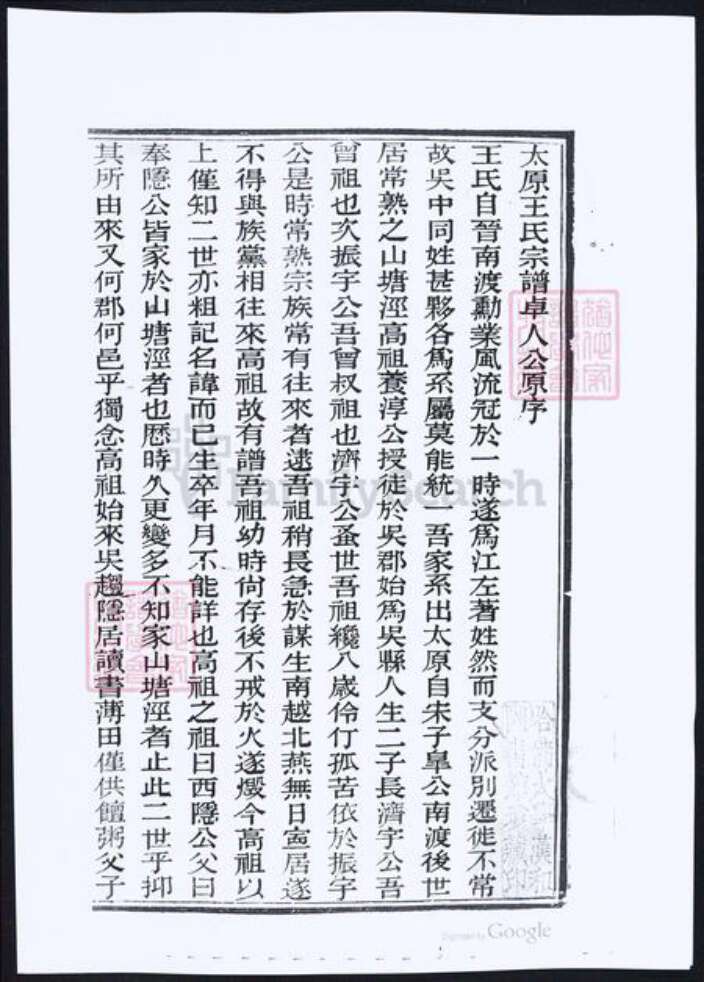 太原王氏宗譜卓人公原序
王氏自晉南渡勳業風流冠於一時遂爲江左著姓然而支分派別遷徙不常
故吳中同姓甚夥各爲系屬莫能統一吾家系出太原自宋子皐公南渡後世
居常熟之山塘涇高祖養淳公授徒於吳郡始爲吳縣人生二子長濟宇公吾
曾祖也次振宇公吾曾叔祖也濟宇公蚤世吾祖纔八歲伶仃孤苦依於振宇
公是時常熟宗族常有往來者逮吾祖稍長急於謀生南越北燕無日寍居遂
不得與族黨相往來高祖故有譜吾祖幼時尙存後不戒於火遂燬今高祖以
上僅知二世亦粗記名諱而已生卒年月不能詳也高祖之祖曰西隱公父曰
奉隱公皆家於山塘涇者也歷時久更變多不知家山塘涇者止此二世乎抑
其所由來又何郡何邑乎獨念高祖始來吳趨隱居讀書薄田僅供饘粥父子
FamilySearch
Digitized by Google